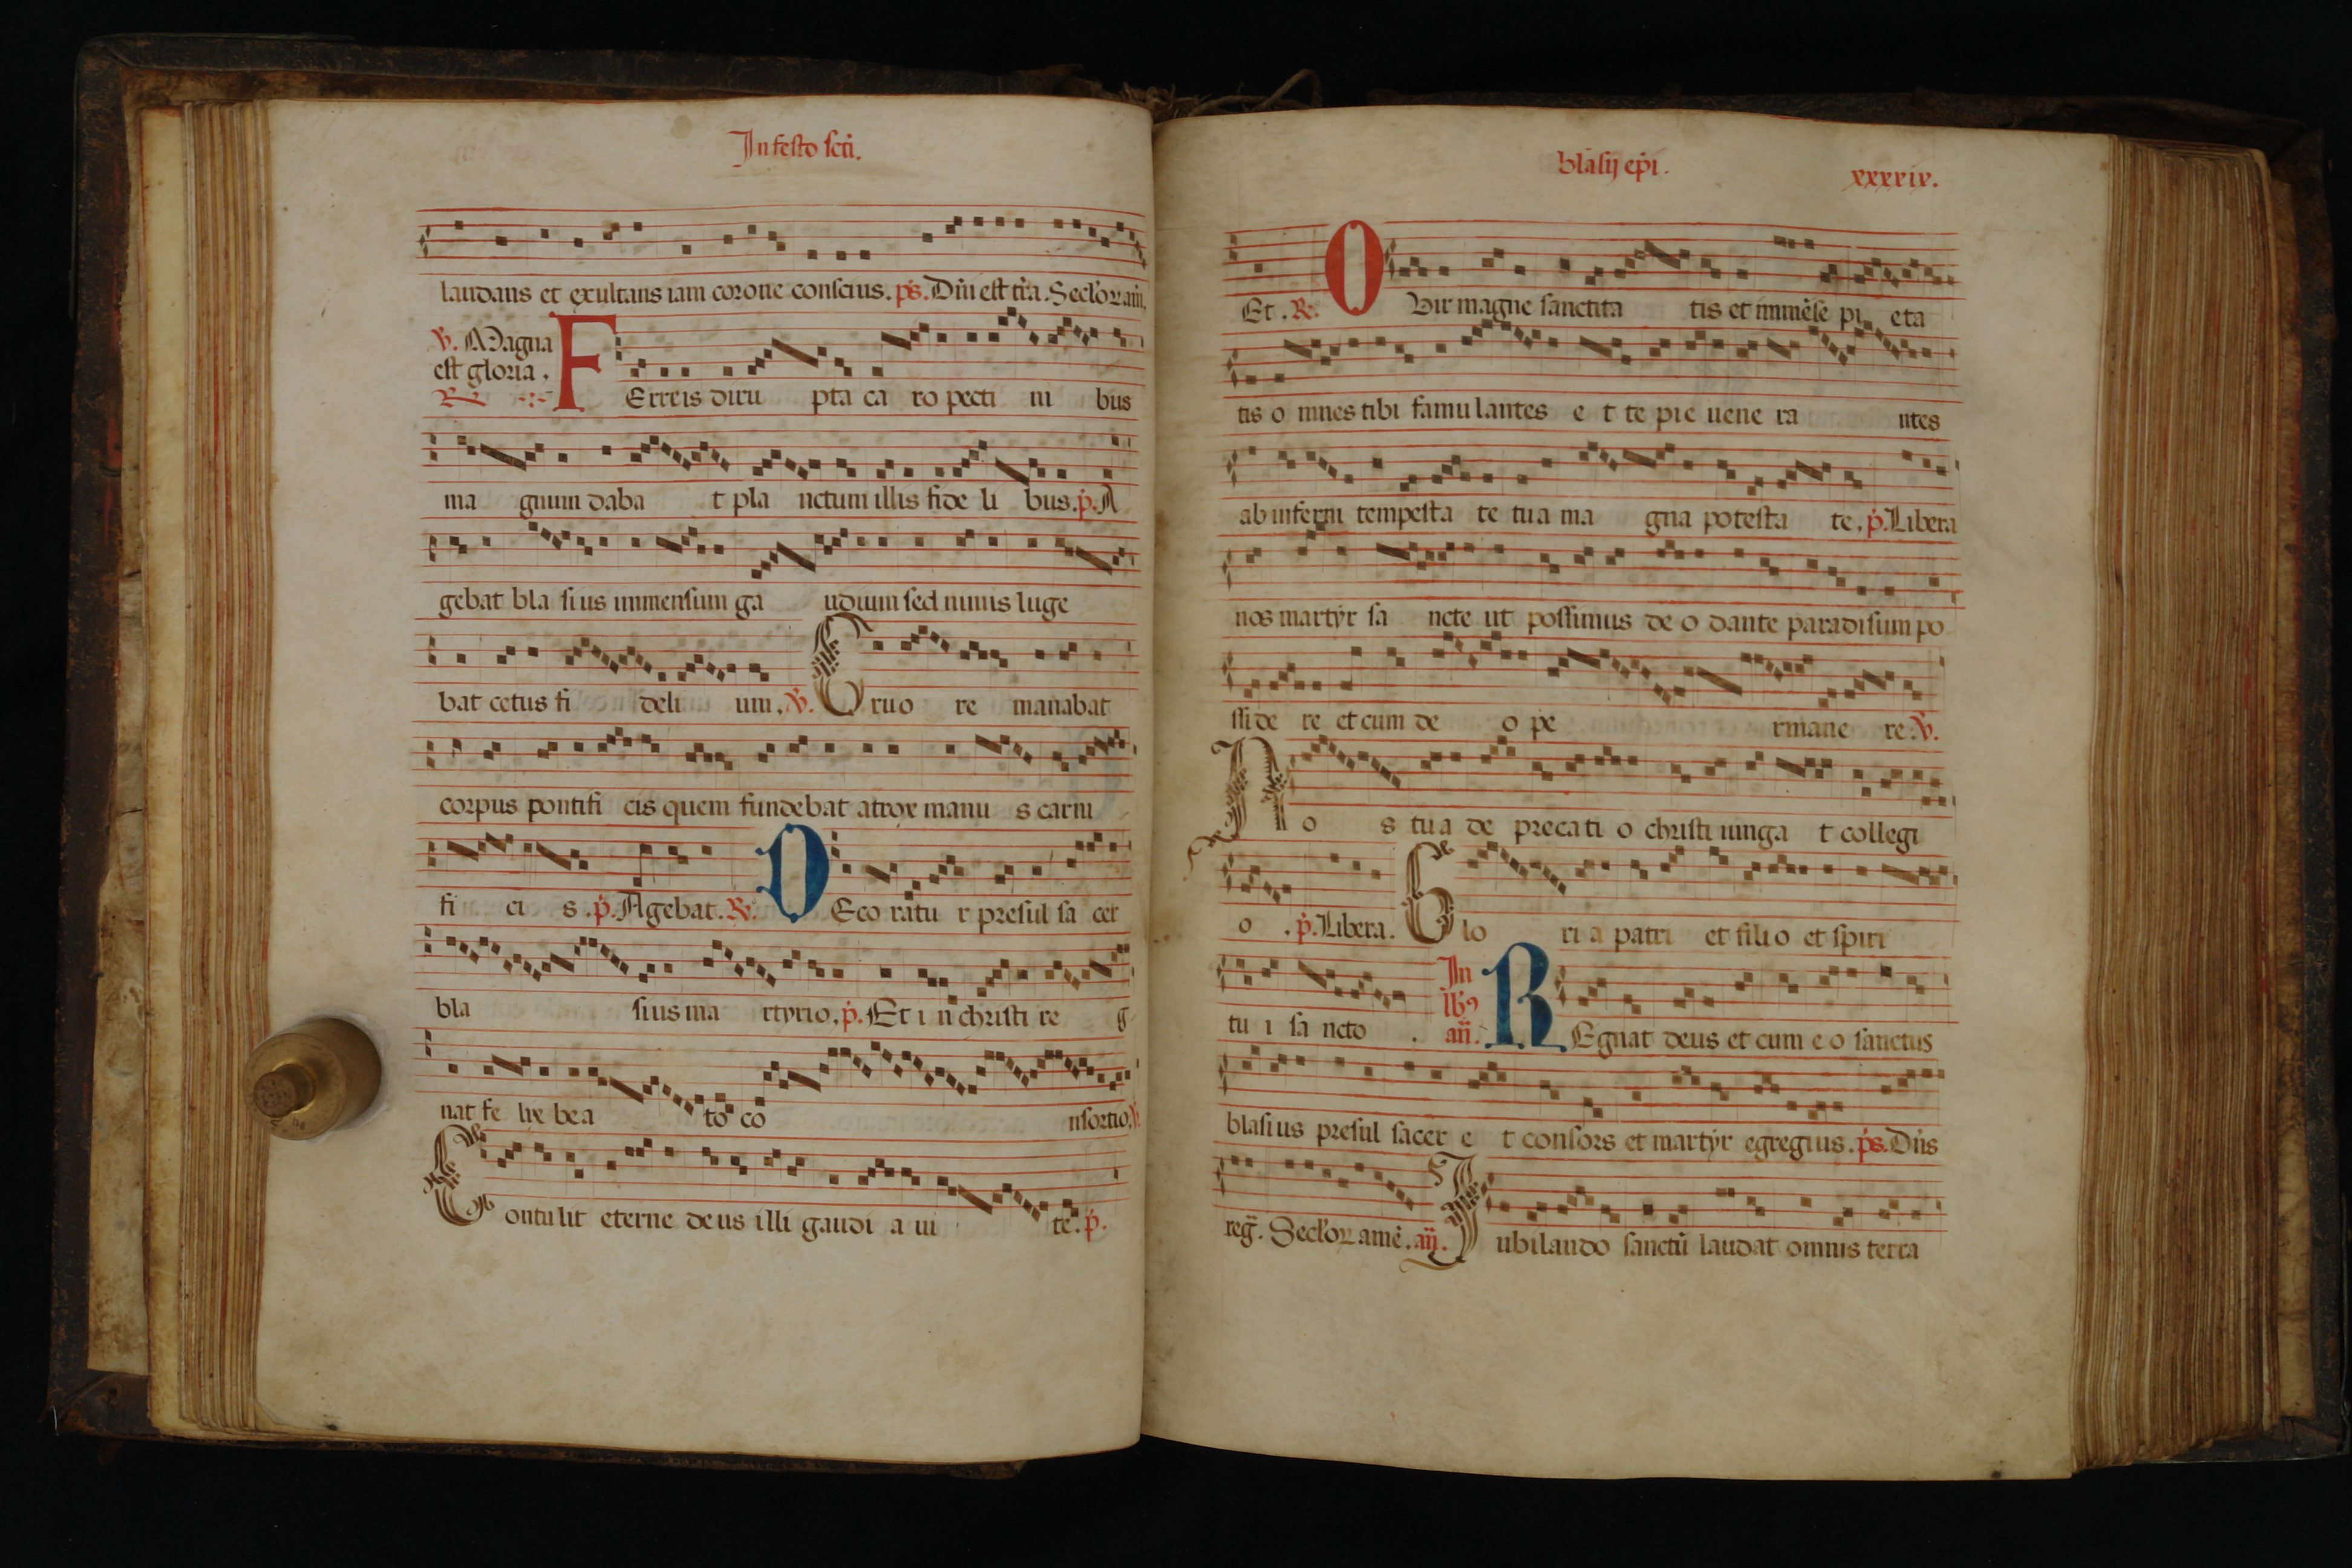 In festo scti.
laudans et exultans iam corone conscius. ps. Dñi est tr̄a. Seclorum am̄.
℣. Magna
est gloria.
℟ FErreis diru pta ca ro pecti ni bus
ma gnum daba t pla nctum illis fide li bus. p̄. A
gebat bla sius immensum ga udium sed nimis luge
bat cetus fi deli um. ℣. Cruo re manabat
corpus pontifi cis quem fundebat atrox manu s carni
fi ci s. p̄. Agebat. ℟. DEco ratu r presul sa cer
bla sius ma rtyrio. p̄. Et i n christi re g
nat fe lix be a to co nsortio. ℣.
Contulit eterne deus illi gaudi a ui te. p̄.
blasij ep̄i. xxxxix.
Et. ℟. O Vir magne sanctita tis et immēse pi eta
tis o mnes tibi famulantes e t te pie uene ra ntes
ab inferni tempesta te tua ma gna potesta te. p̄. Libera
nos martyr sa ncte ut possimus de o dante paradisum po
ssi de re et cum de o pe rmane re. ℣.
No s tua de precati o christi iunga t collegi
o . p̄. Libera. Glo ri a patri et filio et spiri
tu i sa ncto . In
lb9
añ. REgnat deus et cum e o sanctus
blasius presul sacer e t consors et martyr egregius. ps. Dñs
reg̃. Seclorum amē. añ. Iubilando sanctū laudat omnis terra